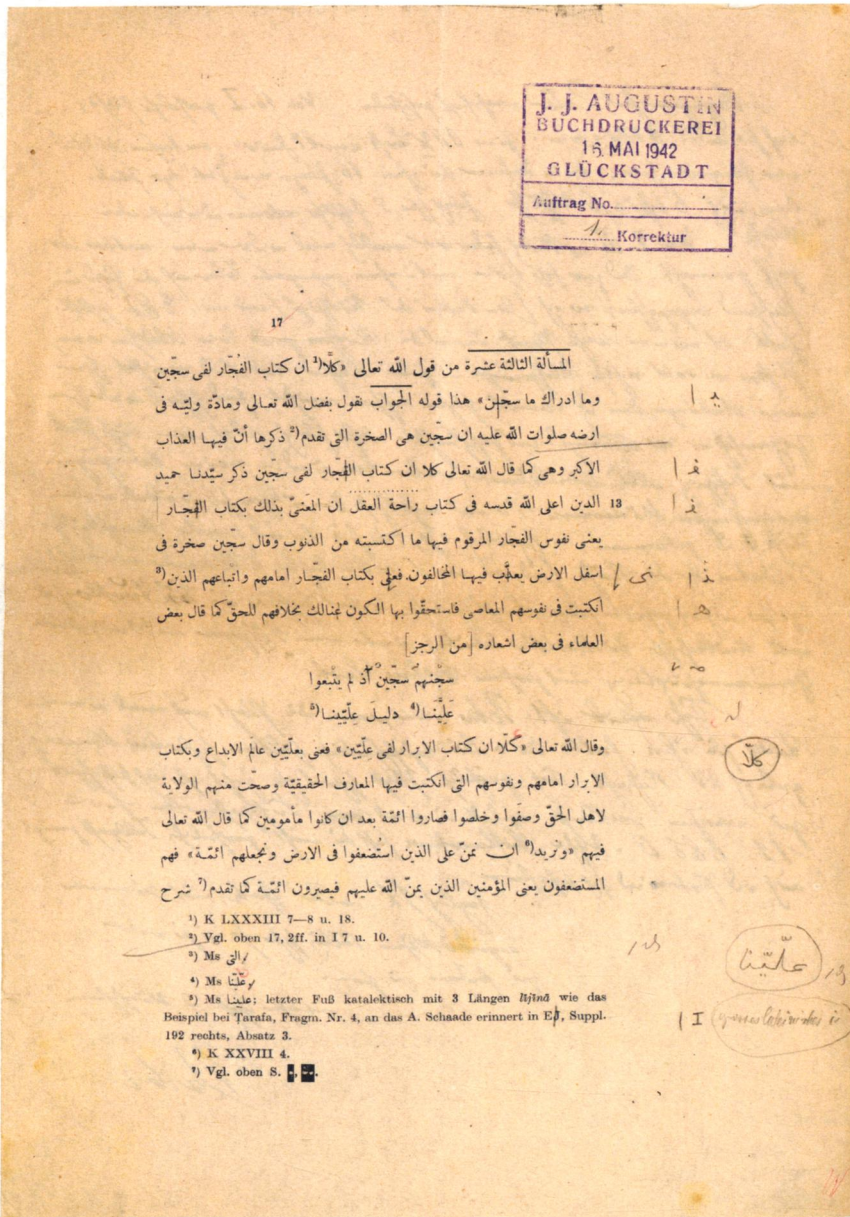 J. J. AUGUSTIN
BUCHDRUCKEREI
16. MAI 1942
GLÜCKSTADT
Auftrag No.
1. Korrektur
17
المسألة الثالثة عشرة من قول الله تعالى «كلّا¹) ان كتاب الفُجّار لفى سجّين
وما ادراك ما سجّين» هذا قوله الجواب نقول بفضل الله تعـالى ومادّة وليّـه فى
ارضه صلوات الله عليه ان سجّين هى الصخرة التى تقدم²) ذكرها أنّ فيهـا العذاب
الاكبر وهى كما قال الله تعالى كلا ان كتاب الفجّار لفى سجّين ذكر سيّدنـا حميد
13 الدين اعلى الله قدسه فى كتاب راحة العقل ان المَعنىّ بذلك بكتاب الفجّار
يعنى نفوس الفجّار المرقوم فيها ما اكتسبته من الذنوب وقال سجّين صخرة فى
اسفل الارض يعذّب فيهـا المخالفون فعنى بكتاب الفجّـار امامهم واتباعهم الذين³)
انكتبت فى نفوسهم المعاصى فاستحقّوا بها الكون هنالك بخلافهم للحقّ كما قال بعض
العلماء فى بعض اشعاره [من الرجز]
سجّنهم سجّين اذ لم يتبعوا
عَلِيَّنَـا⁴) دليـلَ علّيّينـا⁵)
وقال الله تعالى «كلّا ان كتاب الابرار لفى علّيّين» فعنى بعلّيّين عالم الابداع وبكتاب
كلّا
الابرار امامهم ونفوسهم التى انكتبت فيها المعارف الحقيقيّة وصحّت منهم الولاية
لاهل الحقّ وصفَوا وخلصوا فصاروا ائمّة بعد ان كانوا مأمومين كما قال الله تعالى
فيهم «ونريد⁶) ان نمنّ على الذين استُضعفوا فى الارض ونجعلهم ائمّـة» فهم
المستضعفون يعنى المؤمنين الذين يمنّ الله عليهم فيصيرون ائمّـة كما تقدم⁷) شرح
¹) K LXXXIII 7—8 u. 18.
²) Vgl. oben 17, 2ff. in I 7 u. 10.
³) Ms التى
علّيّنا
⁴) Ms علّيّنا
⁵) Ms علينا; letzter Fuß katalektisch mit 3 Längen līјīnā wie das
Beispiel bei Tarafa, Fragm. Nr. 4, an das A. Schaade erinnert in EJ, Suppl.
I
192 rechts, Absatz 3.
⁶) K XXVIII 4.
⁷) Vgl. oben S.